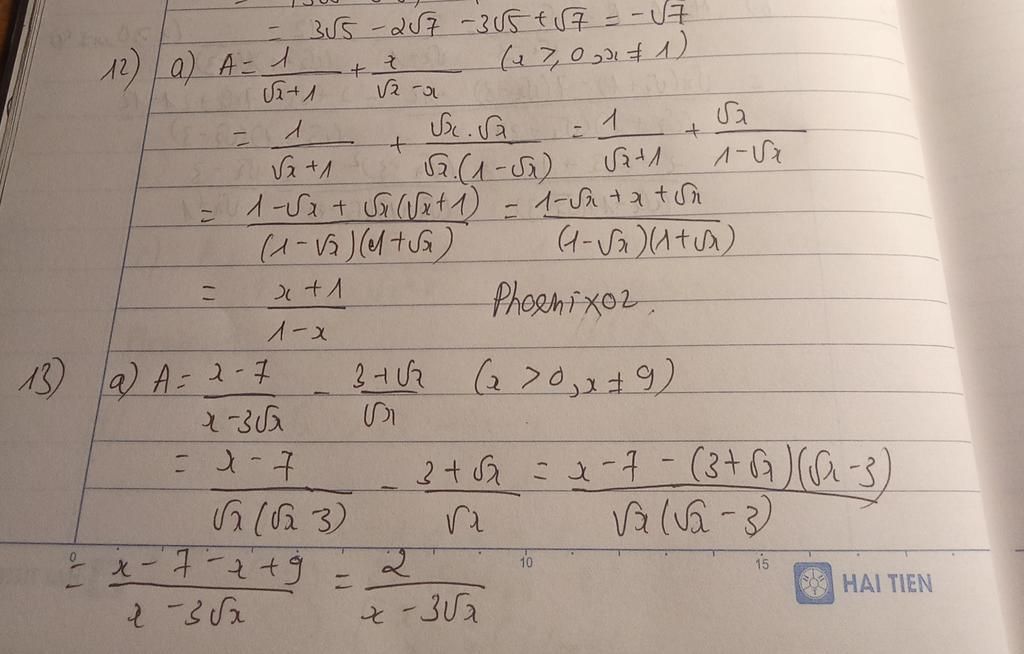 = 3√5 - 2√7 - 3√5 + √7 = -√7
12) a) A = 1/(√x+1) + x/(√x-x) (x ≥ 0, x ≠ 1)
= 1/(√x+1) + (√x.√x)/(√x.(1-√x)) = 1/(√x+1) + √x/(1-√x)
= (1-√x + √x(√x+1))/((1-√x)(1+√x)) = (1-√x+x+√x)/((1-√x)(1+√x))
= (x+1)/(1-x) Phoenix02.
13) a) A = (x-7)/(x-3√x) - (3+√x)/√x (x > 0, x ≠ 9)
= (x-7)/(√x(√x-3)) - (3+√x)/√x = (x-7-(3+√x)(√x-3))/(√x(√x-3))
0 10 15 HAI TIEN
= (x-7-x+9)/(x-3√x) = 2/(x-3√x)